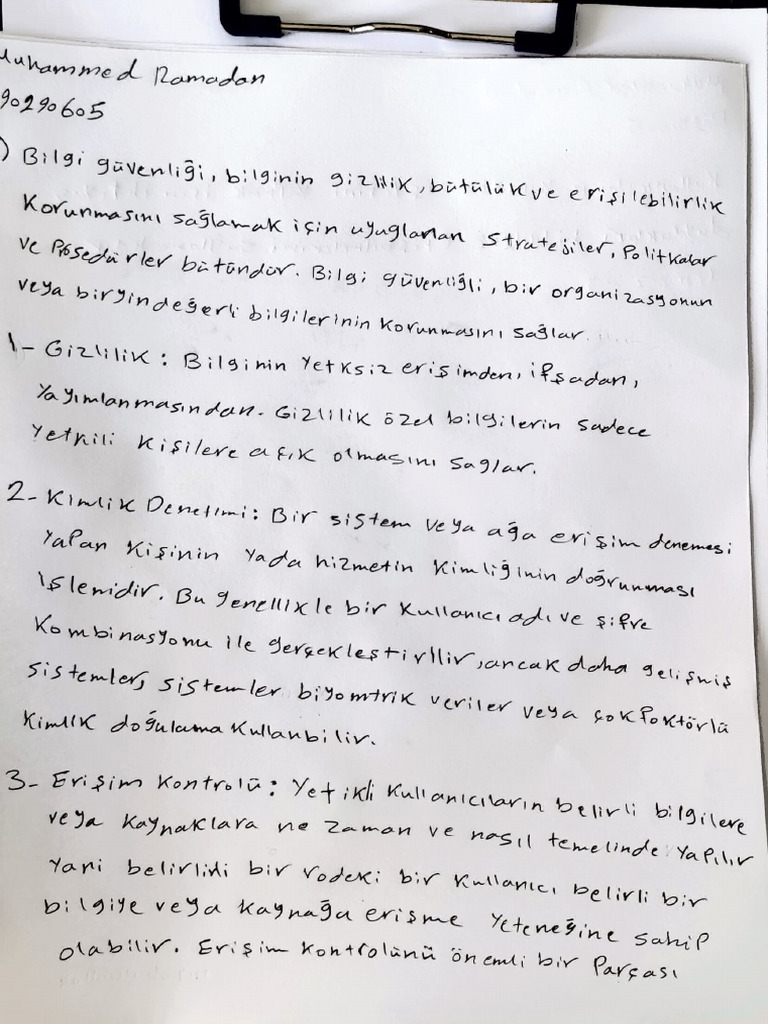 Muhammed Ramadan
90290605
) Bilgi güvenliği, bilginin gizlilik, bütülük ve erişilebilirlik
Korunmasını sağlamak için uyuglanan stratejiler, Politkalar
ve Prosedürler bütündür. Bilgi güvenliğli, bir organizasyonun
veya biryin değerli bilgilerinin korunmasını sağlar.
1- Gizlilik: Bilginin Yetksiz erişimden, ifşadan,
Yayımlanmasından. Gizlilik özel bilgilerin sadece
Yetkili Kişilere açık olmasını sağlar.
2- Kimlik Denetimi: Bir sistem veya ağa erişim denemesi
Yapan Kişinin Yada hizmetin Kimliğinin doğrunması
işlemidir. Bu genellikle bir Kullanıcı adı ve şifre
Kombinasyonu ile gerçekleştirllir, ancak daha gelişmiş
sistemler, sistemler biyomtrik veriler veya çok Foktörlü
Kimlik doğulama Kullanbilir.
3- Erişim Kontrolü: Yetikli Kullanıcıların belirli bilgilere
veya Kaynaklara ne zaman ve nasıl temelinde Yapılır
Yani belirlidi bir rodeki bir Kullanıcı belirli bir
bilgiye veya Kaynağa erişme Yeteneğine sahip
olabilir. Erişim Kontrolünü önemli bir Parçası